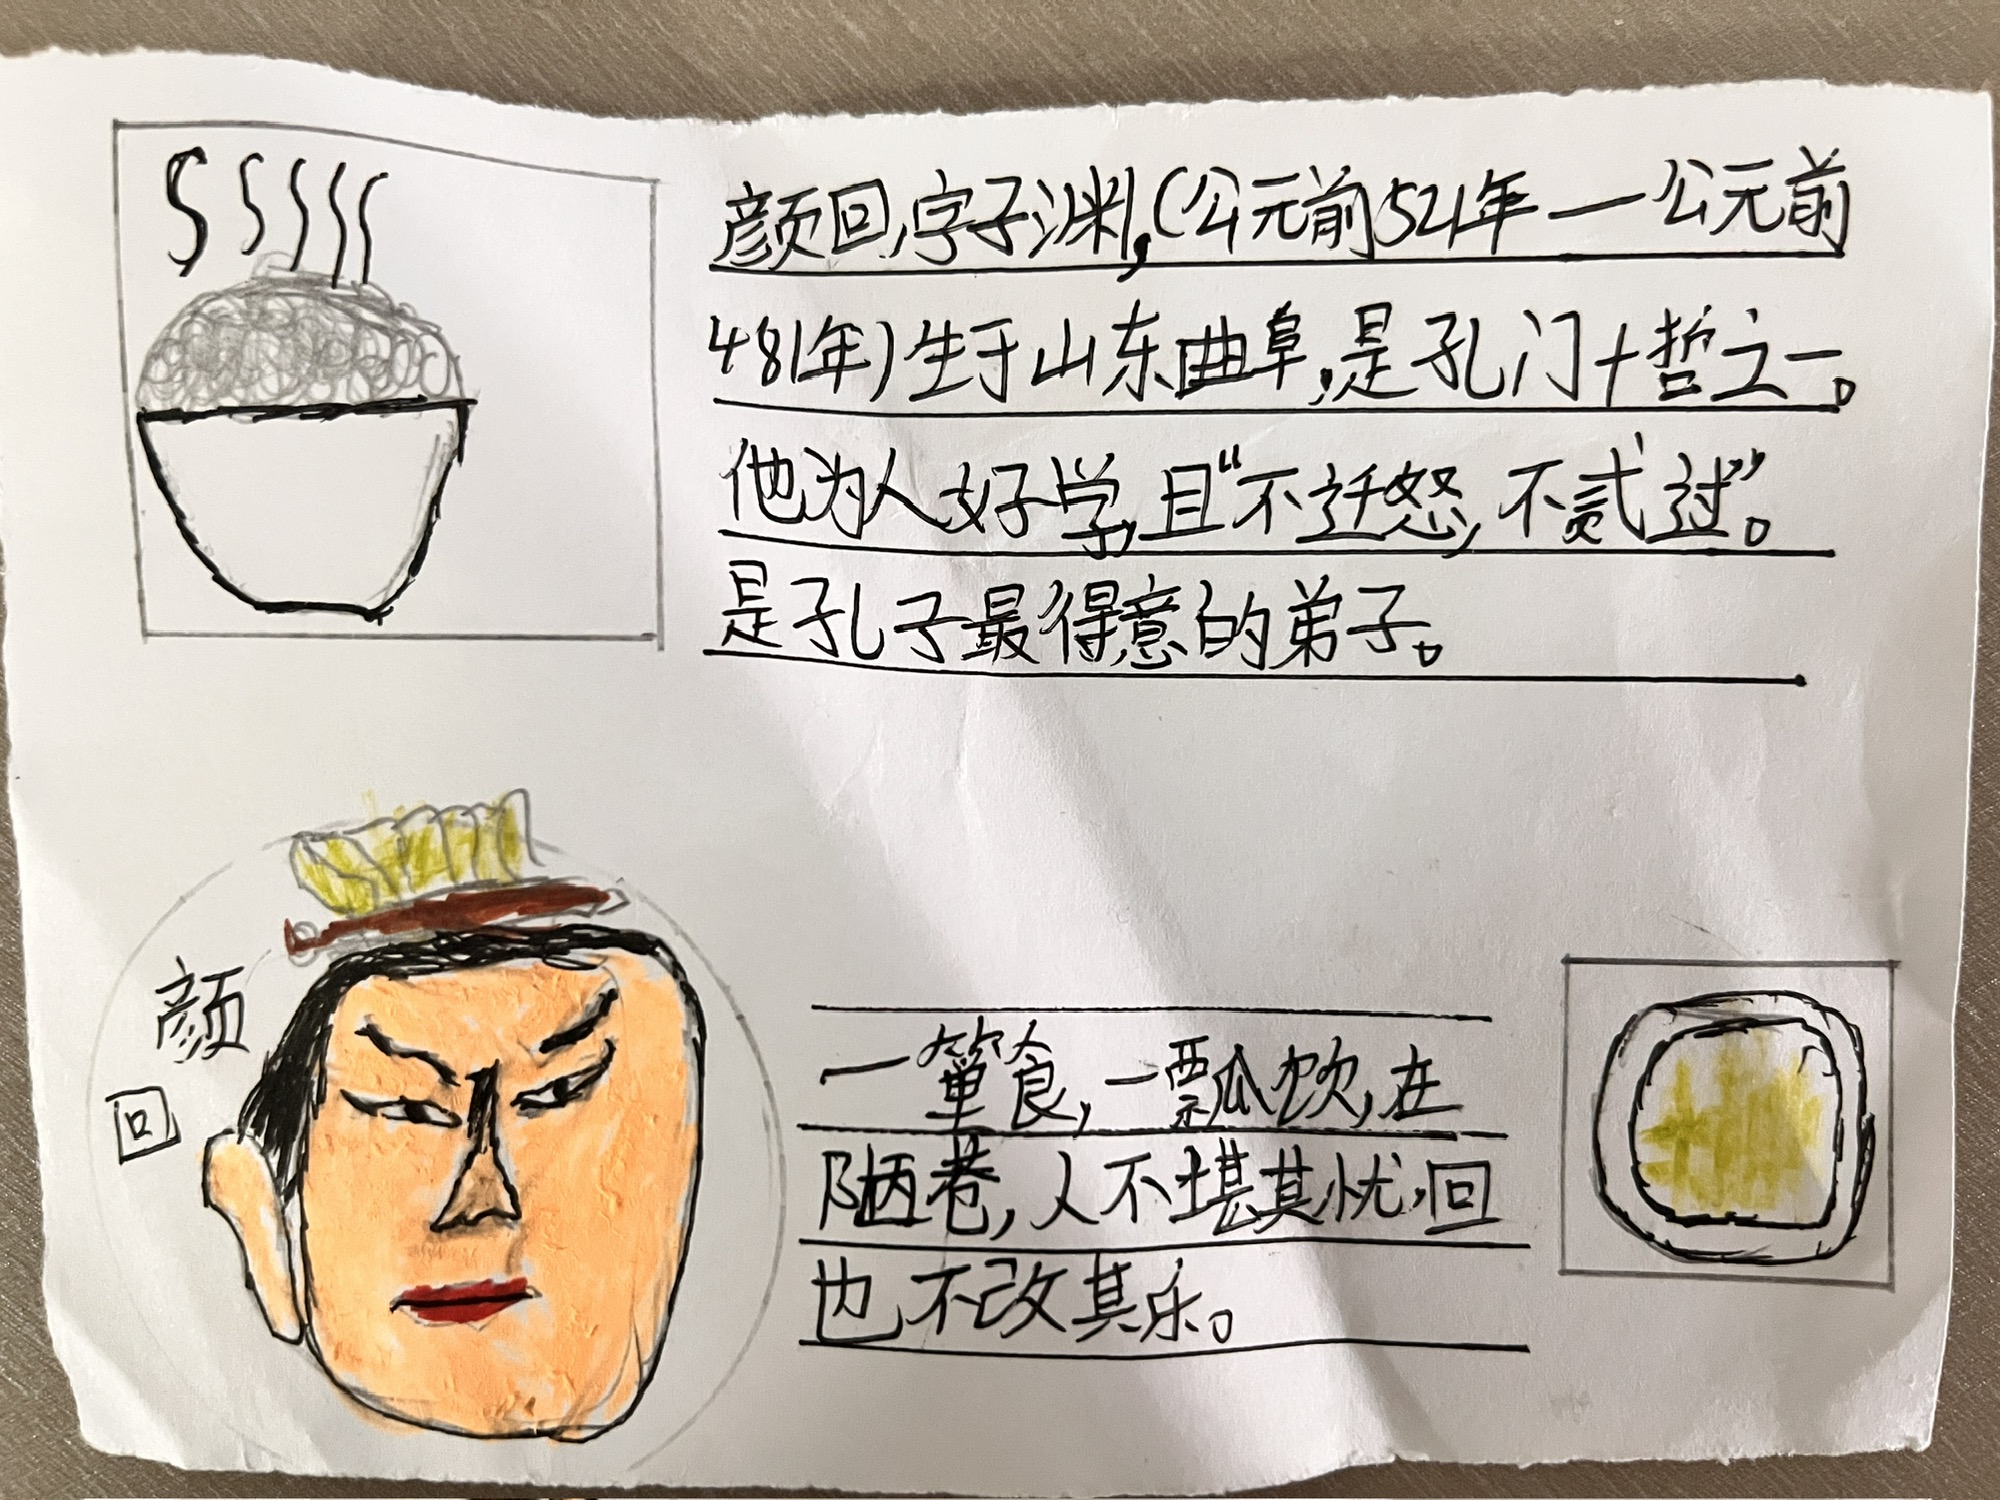 颜回,字子渊,(公元前521年—公元前
481年)生于山东曲阜,是孔门十哲之一。
他为人好学,且“不迁怒,不贰过”。
是孔子最得意的弟子。
颜
回
一箪食,一瓢饮,在
陋巷,人不堪其忧,回
也不改其乐。